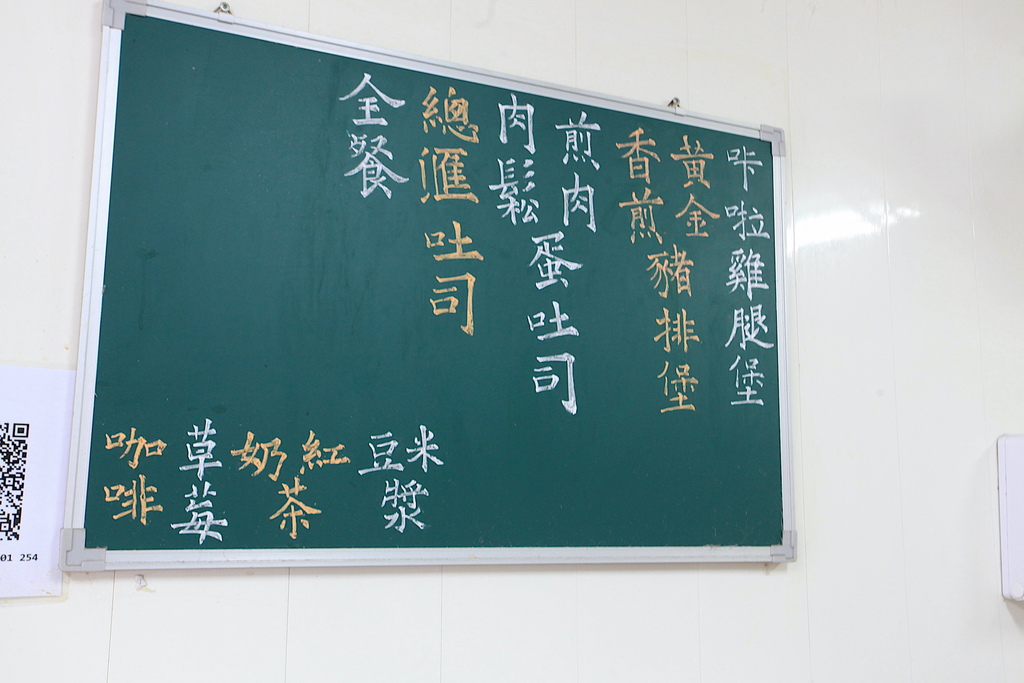 咔啦雞腿堡
黃金
香煎
豬排堡
煎肉
肉鬆
蛋吐司
總匯吐司
全餐
米
豆
漿
紅
奶
茶
草莓
咖啡
01 254